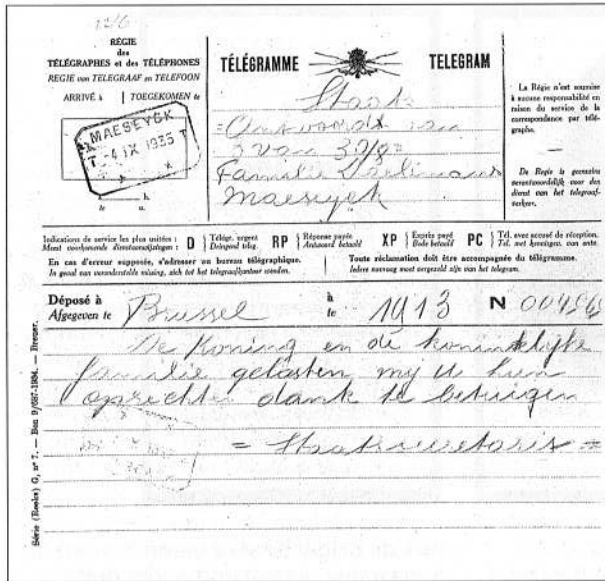 RÉGIE
des
TÉLÉGRAPHES et des TÉLÉPHONES
REGIE van TELEGRAAF en TELEFOON
ARRIVÉ à | TOEGEKOMEN te
MAESEYCK
T -4 IX 1935 T
h.
te u.
TÉLÉGRAMME TELEGRAM
Staat
=Antwoord van
van 30/8=
Familie
Maeseyck
La Régie n'est soumise
à aucune responsabilité en
raison du service de la
correspondance par télé-
graphe.
De Regie is geenszins
verantwoordelijk voor den
dienst van het telegraaf-
verkeer.
Indications de service les plus usitées :
Meest voorkomende dienstaanwijzingen :
D } Télégr. urgent
Dringend teleg.
RP } Réponse payée
Antwoord betaald
XP } Exprès payé
Bode betaald
PC } Tél. avec accusé de réception.
Tel. met kennisgev. van ontv.
En cas d'erreur supposée, s'adresser au bureau télégraphique.
In geval van veronderstelde missing, zich tot het telegraafkantoor wenden.
Toute réclamation doit être accompagnée du télégramme.
Iedere navraag moet vergezeld zijn van het telegram.
Déposé à
Afgegeven te Brussel à
te 1913 N
De Koning en de koninklijke
familie gelasten mij u hun
oprechte dank te betuigen
= Staatssecretaris =
Série (Reeks) G, nº 7. — Bon 9/687-1934. —